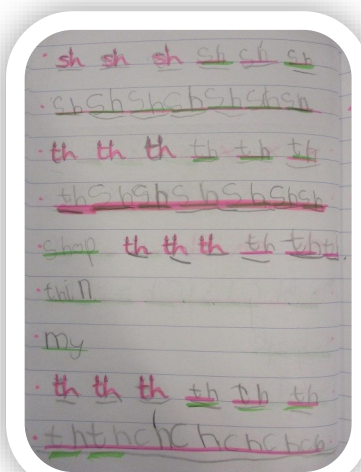 sh sh sh sh sh sh
sh sh sh sh sh sh sh
th th th th th th
th sh sh sh sh sh sh
shop th th th th th th
thin
my
th th th th th th
th th ch ch ch ch ch